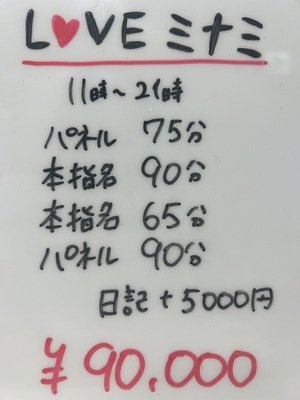 L♥VE ミナミ
11時～21時
パネル 75分
本指名 90分
本指名 65分
パネル 90分
日記+5000円
¥90.000